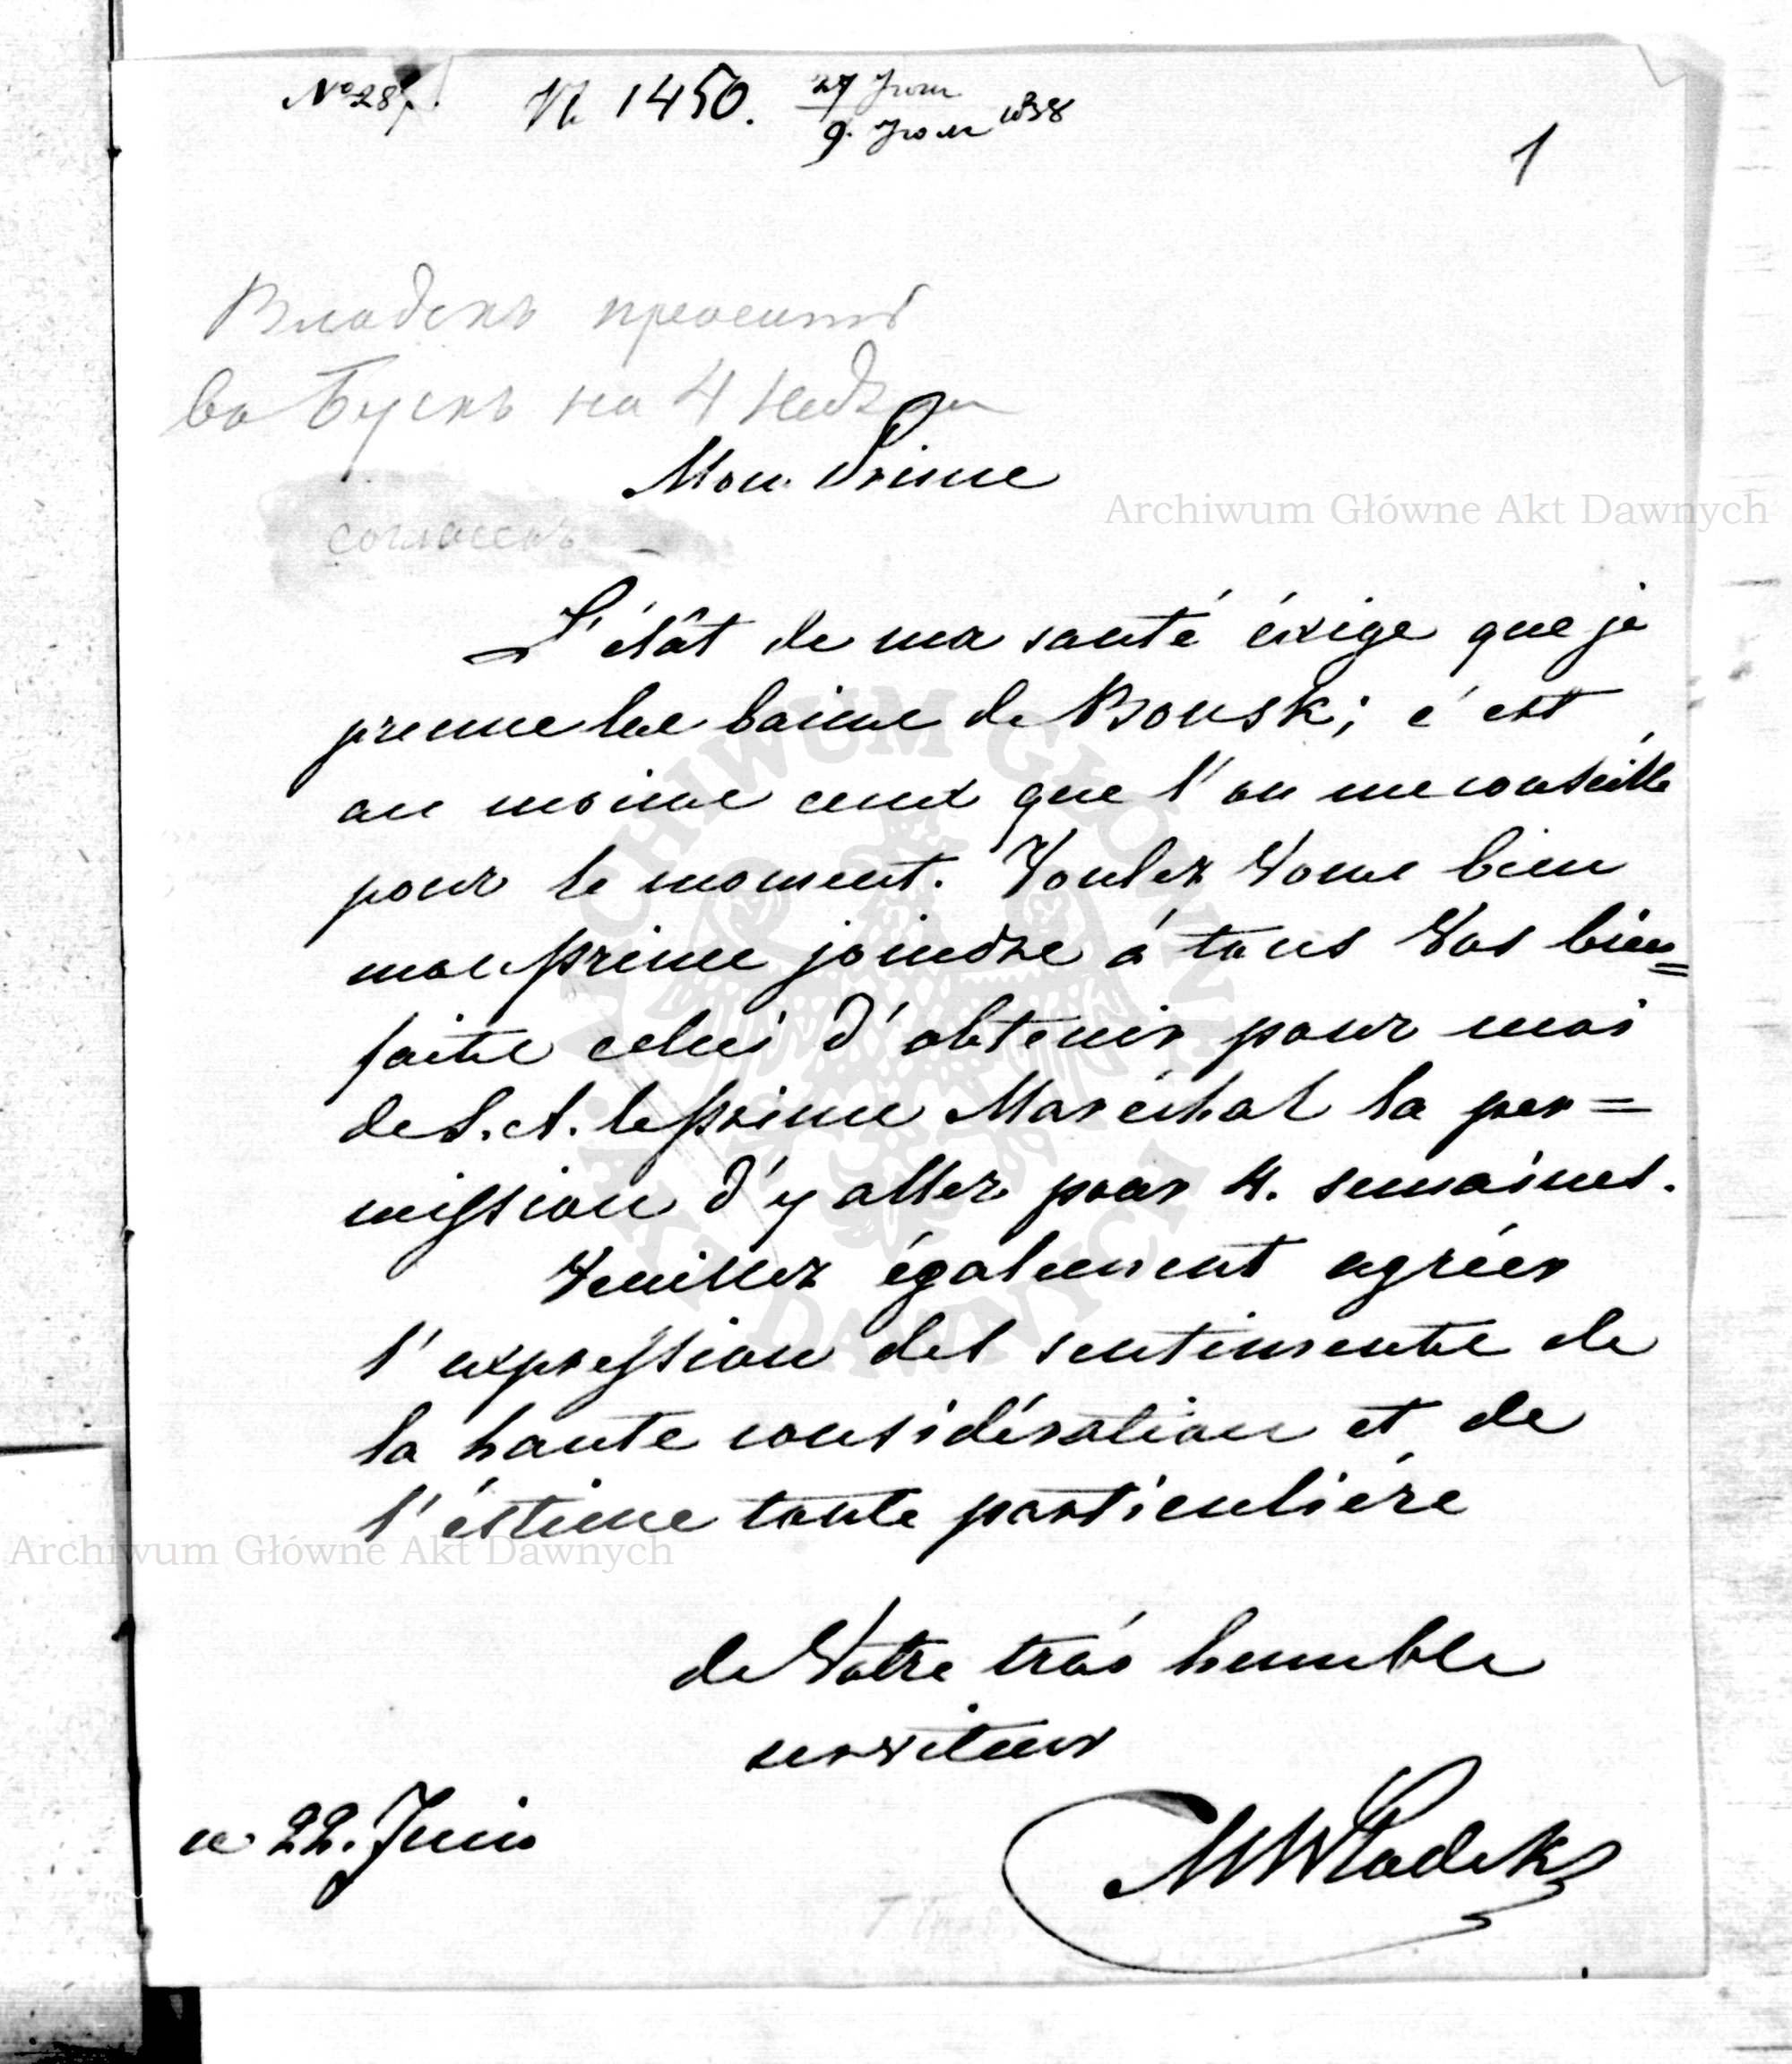 № 28
№ 1450. 27 Іюня
9. Іюля 1838
1
Владекъ просится
въ Бускъ на 4 недѣли
Mon Prince
Archiwum Główne Akt Dawnych
согласенъ
L'état de ma santé éxige que je
prenne les bains de Bousk; c'est
au moins ceux que l'on me conseille
pour le moment. Voulez Vous bien
mon prince joindre à tous Vos bien=
faits celui d'obtenir pour moi
de S. A. le prince Maréchal la per=
mission d'y aller pour 4. semaines.
Veuillez également agréer
l'expression des sentiments de
la haute considération et de
l'éstime toute particulière
Archiwum Główne Akt Dawnych
de Votre très humble
serviteur
22. Juin
MWladek